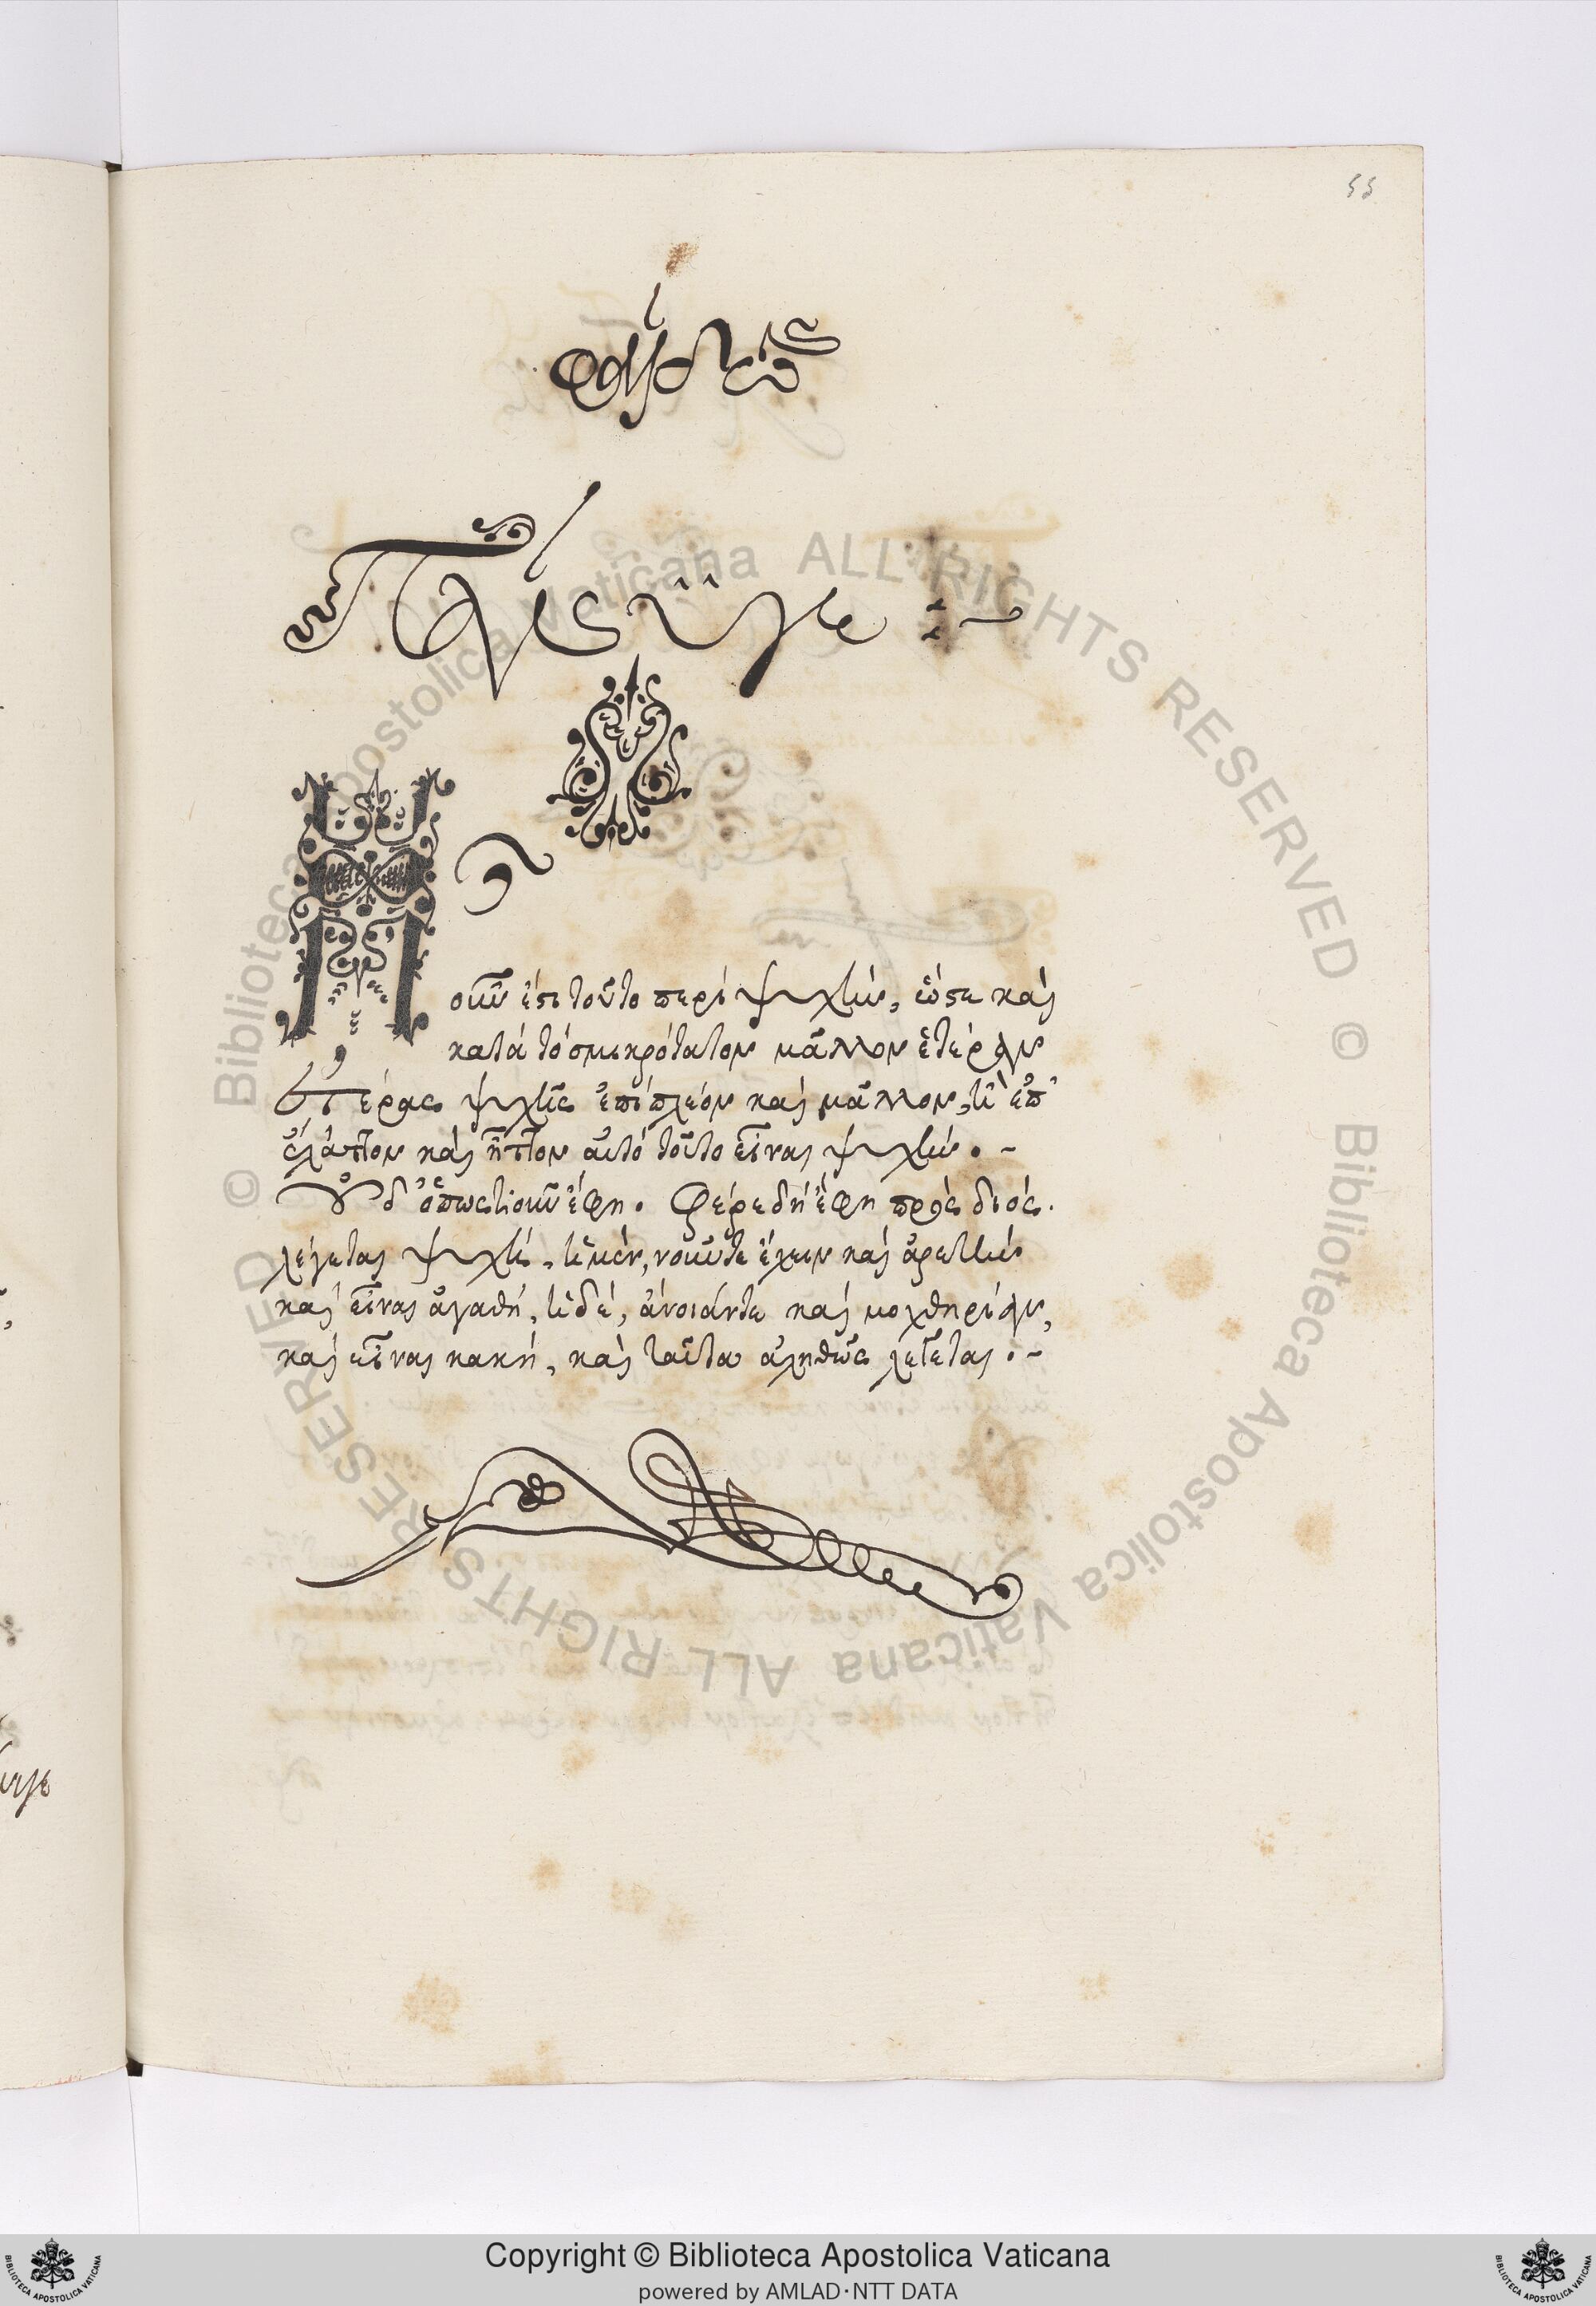 55
φαίδων
Πλάτωνος
Ἦ
οὖν ἔστι τοῦτο περὶ ψυχήν, ὥστε καὶ
κατὰ τὸ σμικρότατον μᾶλλον ἑτέραν
ἑτέρας ψυχῆς ἐπὶ πλέον καὶ μᾶλλον, ἢ ἐπ'
ἔλαττον καὶ ἧττον αὐτὸ τοῦτο εἶναι ψυχήν. -
Οὐδ' ὁπωστιοῦν ἔφη. Φέρε δὴ ἔφη πρὸς διός.
λέγεται ψυχή, ἡ μὲν, νοῦν τε ἔχειν καὶ ἀρετὴν
καὶ εἶναι ἀγαθή, ἡ δὲ, ἄνοιάν τε καὶ μοχθηρίαν,
καὶ εἶναι κακή, καὶ ταῦτα ἀληθῶς λέγεται. -
© Biblioteca Apostolica Vaticana ALL RIGHTS RESERVED © Biblioteca Apostolica Vaticana ALL RIGHTS RESERVED
Copyright © Biblioteca Apostolica Vaticana
powered by AMLAD·NTT DATA